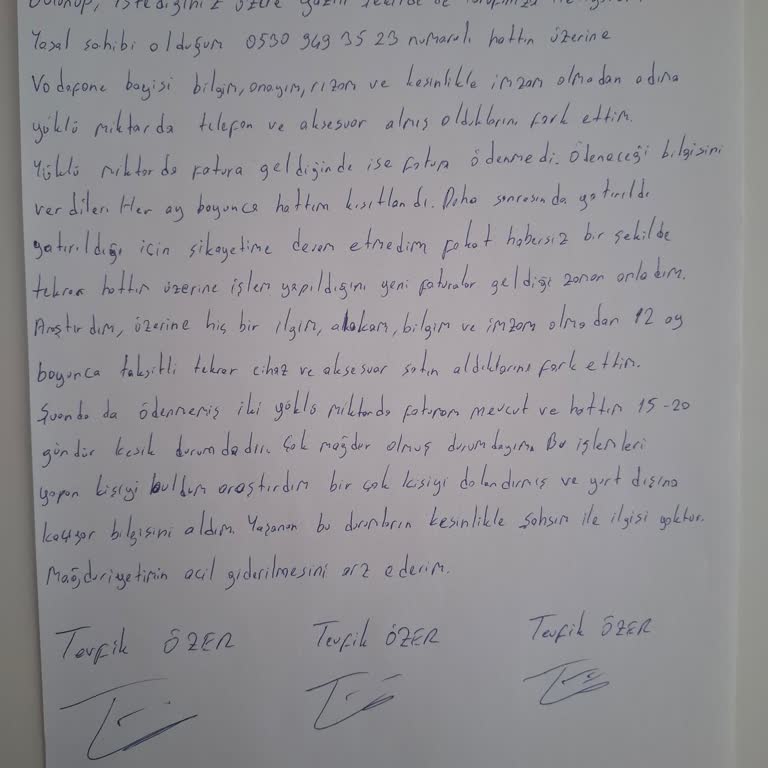 istediğiniz üzere
Yasal sahibi olduğum 0530 949 35 23 numaralı hattın üzerine
Vodafone bayisi bilgim, onayım, rızam ve kesinlikle imzam olmadan adıma
yüklü miktarda telefon ve aksesuar almış olduklarını fark ettim.
Yüklü miktarda fatura geldiğinde ise fatura ödenmedi. Ödeneceği bilgisini
verdiler. Her ay boyunca hattım kısıtlandı. Daha sonrasında yatırıldı
yatırıldığı için şikayetime devam etmedim fakat habersiz bir şekilde
tekrar hattın üzerine işlem yapıldığını yeni faturalar geldiği zaman anladım.
Araştırdım, üzerine hiç bir ilgim, alakam, bilgim ve imzam olmadan 12 ay
boyunca taksitli tekrar cihaz ve aksesuar satın aldıklarını fark ettim.
Şuanda da ödenmemiş iki yüklü miktarda faturam mevcut ve hattım 15-20
gündür kesik durumdadır. Çok mağdur olmuş durumdayım. Bu işlemleri
yapan kişiyi buldum araştırdım bir çok kişiyi dolandırmış ve yurt dışına
kaçıyor bilgisini aldım. Yaşanan bu durumların kesinlikle şahsım ile ilgisi yoktur.
Mağduriyetimin acil giderilmesini arz ederim.
Tevfik ÖZER Tevfik ÖZER Tevfik ÖZER